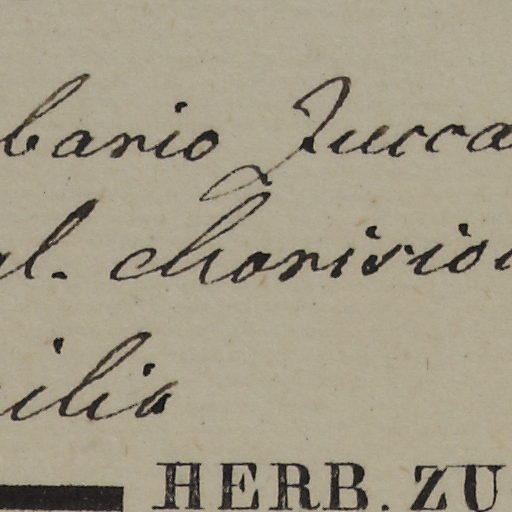 bario Zucca
al. Chorisio
ilia
HERB. ZU